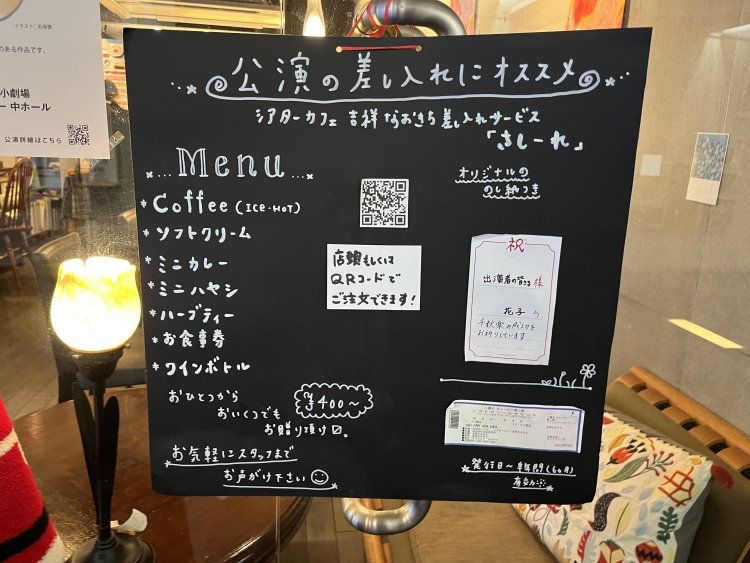 イラスト◎石坂啓
のある作品です。
小劇場
ー 中ホール
公演詳細はこちら
公演の差し入れにオススメ
シアターカフェ 吉祥 なおきち差し入れサービス
「さしーれ」
Menu
オリジナルの
のし紙つき
* Coffee (ICE・HOT)
* ソフトクリーム
* ミニカレー
* ミニハヤシ
* ハーブティー
* お食事券
* ワインボトル
店頭もしくは
QRコードで
ご注文できます!
祝
出演者の皆さま 様
花子 より
千秋楽の成功を
お祈りしています
おひとつから
おいくつでも
お贈り頂け〼。
¥400〜
お気軽にスタッフまで
お声がけ下さい
発行日〜半年間(6ヶ月)
有効〼